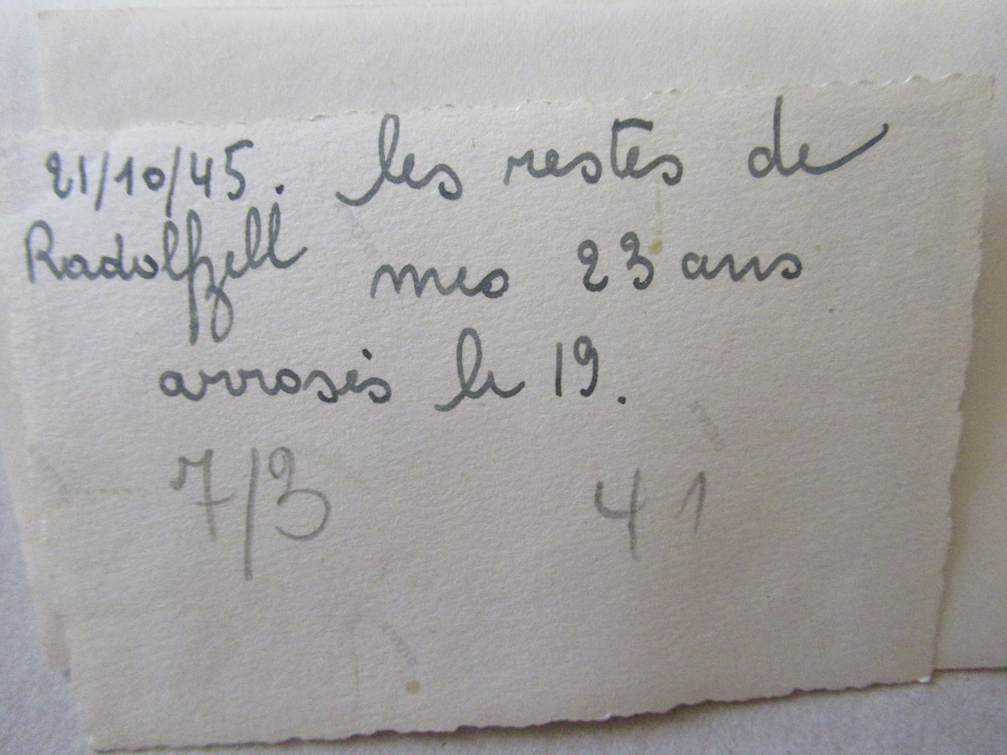 21/10/45. les restes de
Radolfzell mes 23 ans
arrosés le 19.
7/3 41